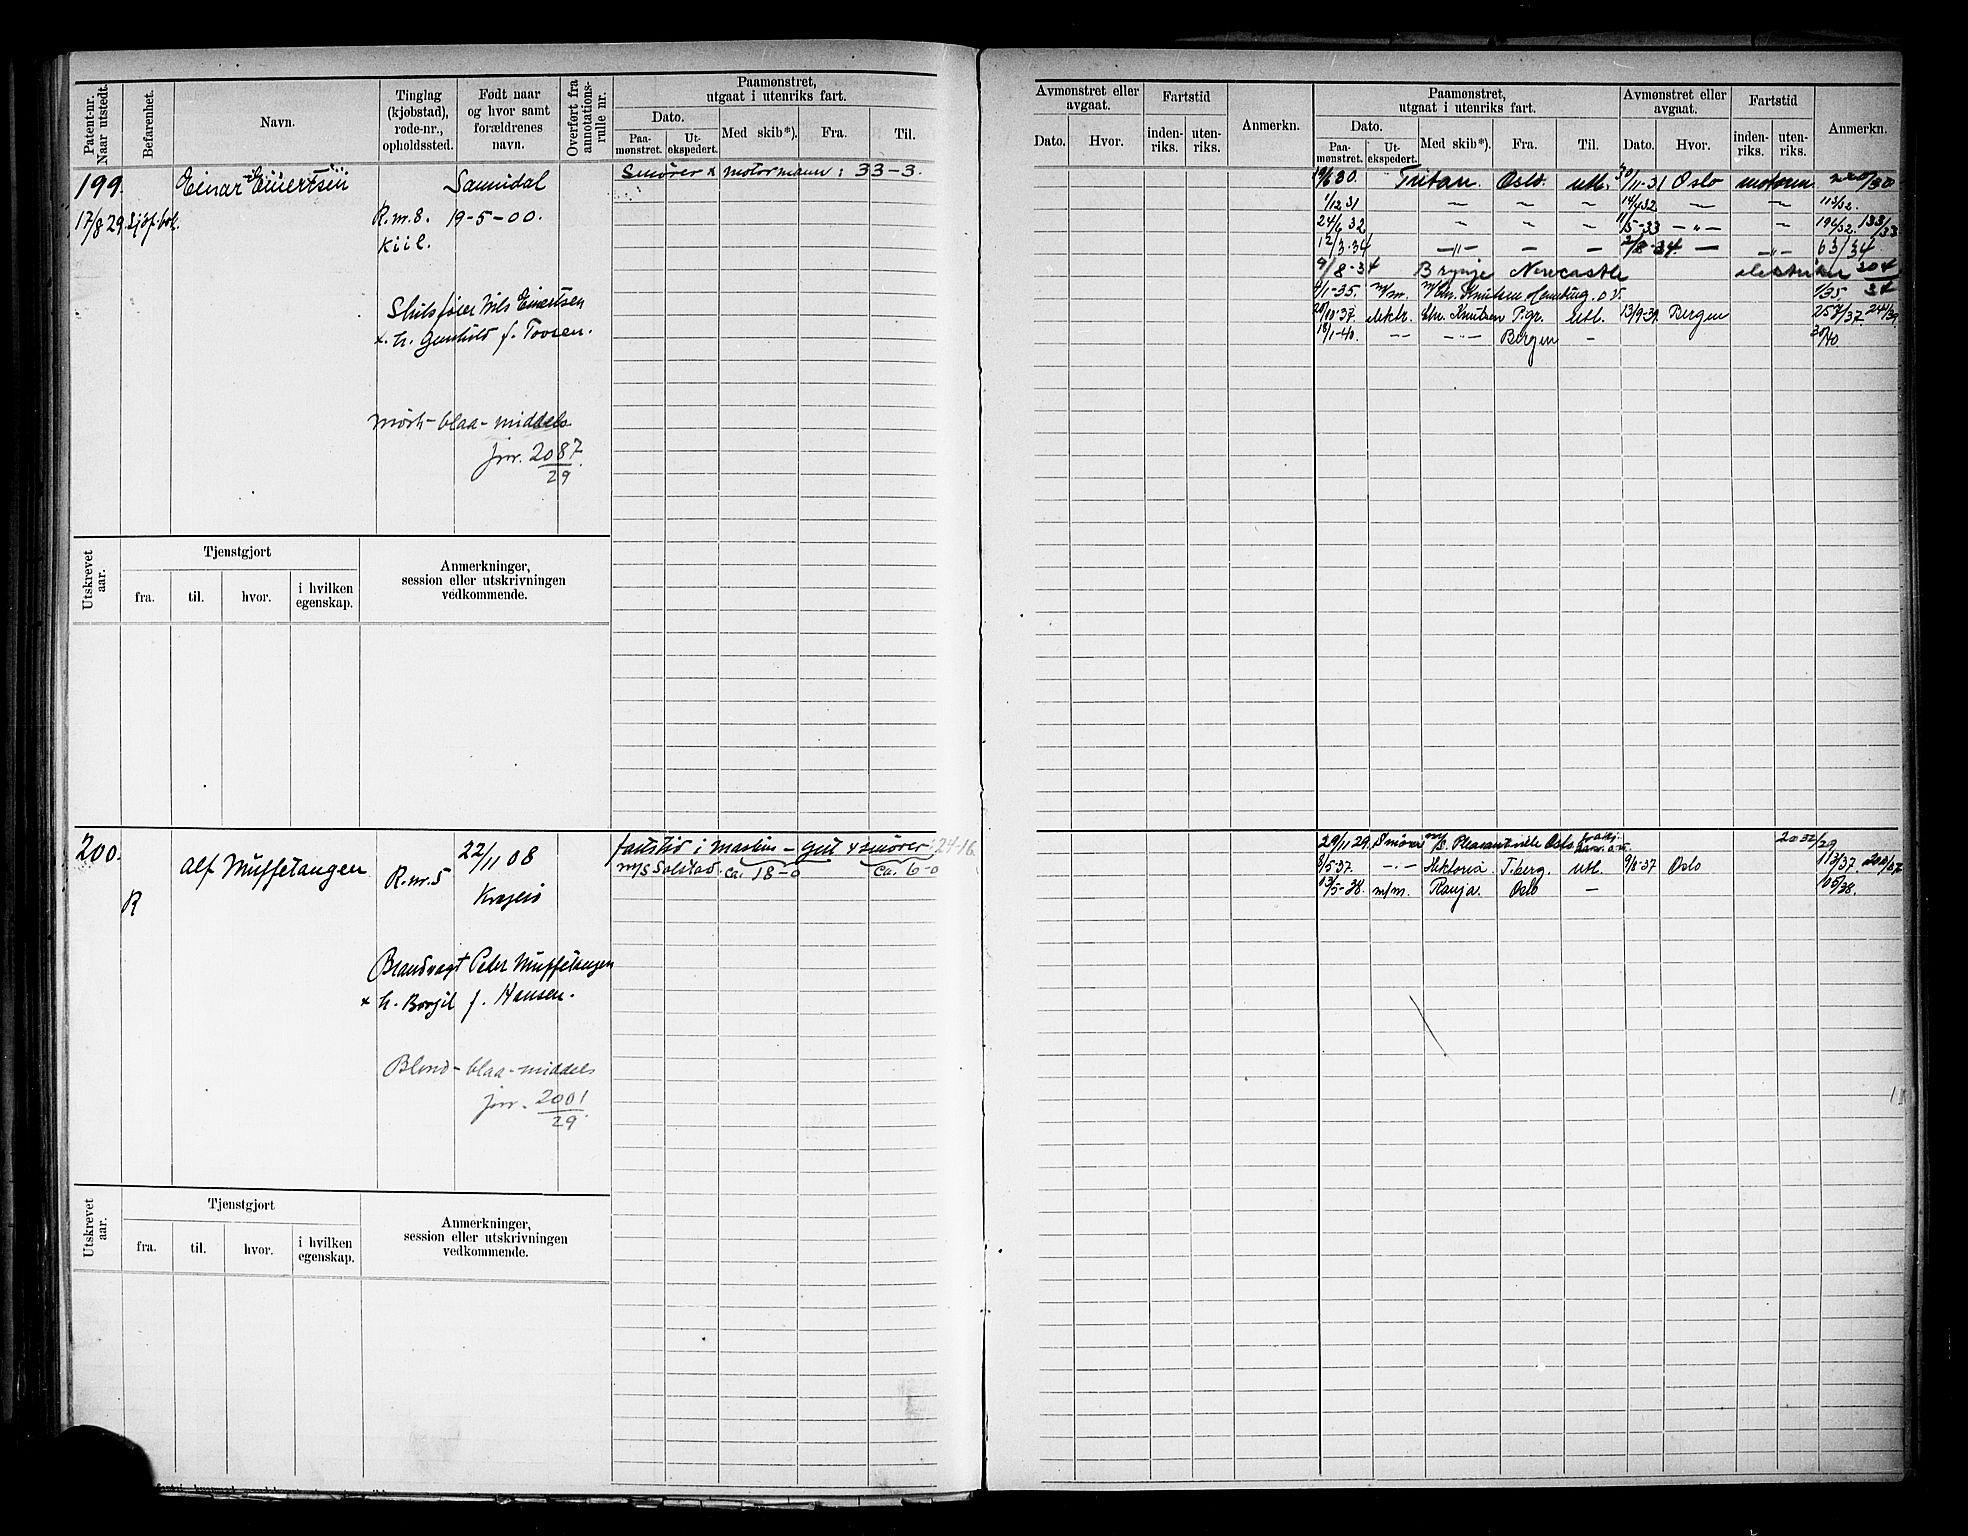 Patent-nr. Naar utstedt.
Befarenhet.
Navn.
Tinglag (kjøbstad), rode-nr., opholdssted.
Født naar og hvor samt forældrenes navn.
Overført fra annotations-rulle nr.
Paamønstret, utgaat i utenriks fart.
Dato.
Paa-mønstret.
Ut-ekspedert.
Med skib*).
Fra.
Til.
199.
17/8 29.
Einar Einertsen
R.m.8.
Kiil.
Sannidal
19-5-00.
Smører & motormann: 33-3.
Nils Einertsen
mørk-blaa-middels
jnr. 2087/29
Utskrevet aar.
Tjenstgjort
fra.
til.
hvor.
i hvilken egenskap.
Anmerkninger, session eller utskrivningen vedkommende.
200.
R
Alf Muffetangen
R.m.5
22/11 08
Kragerø
fartstid i maskin - gut & smører: 24-16.
m/s Solstad. ca. 18-0 ca. 6-0
Brandvagt Peder Muffetangen
& h. Borgil f. Hansen.
Blond-blaa-middels
jnr. 2001/29.
Utskrevet aar.
Tjenstgjort
fra.
til.
hvor.
i hvilken egenskap.
Anmerkninger, session eller utskrivningen vedkommende.
Avmønstret eller avgaat.
Dato.
Hvor.
Fartstid
inden-riks.
uten-riks.
Anmerkn.
Paamønstret, utgaat i utenriks fart.
Dato.
Paa-mønstret.
Ut-ekspedert.
Med skib*).
Fra.
Til.
Avmønstret eller avgaat.
Dato.
Hvor.
Fartstid
inden-riks.
uten-riks.
Anmerkn.
19/6 30. Tritan. Oslo. utl. 30/11-31 Oslo motorm.
1/12 31 — — — 14/4 32 — — 113/32.
24/6 32 — 11/5-33 — " — 196/32. 133/33
12/3-34 — " — — — 2/8-34. — — " — 63/34
9/8-34 Brynje Newcastle elektriker 304/34
4/1-35. m/m. Knutsen Hamburg. o.v. 1/35.
20/10-37. elektr. Chr. Knutsen P.gr. utl. 13/9-39. Bergen 257/37. 241/39.
18/1-40. — — — " — Bergen — 30/40.
29/11 29. Smører m/s. Pleasantville Oslo 2032/29
8/5-37. — " — Hektoria T.berg. utl. 9/8-37 Oslo 113/37. 200/37
13/5-38. m/m. Ranja. Oslo — 105/38.